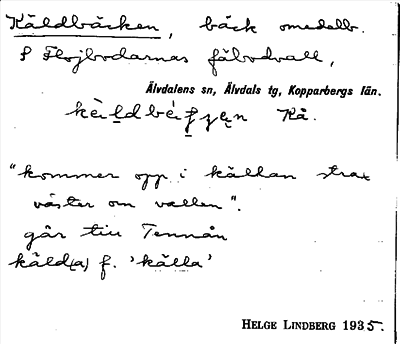 Käldbäcken, bäck omedelb.
S Flojbodarnas fäbodvall,
Älvdalens sn, Älvdals tg, Kopparbergs län.
Kå.
"kommer opp i källan strax
väster om vallen".
går till Tennån
käld(a) f. 'källa'
HELGE LINDBERG 1935.